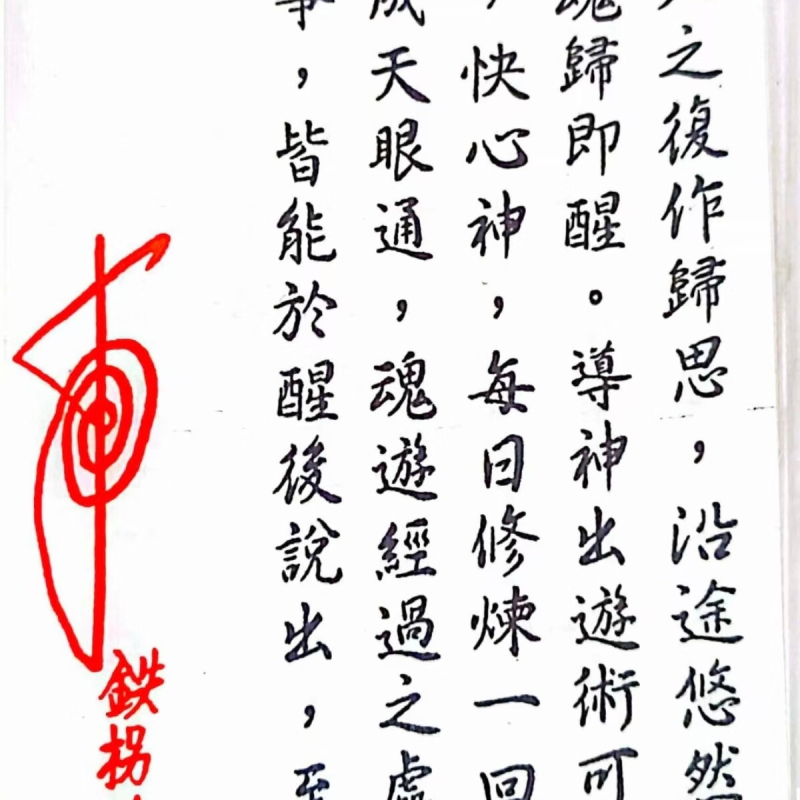 之復作歸思，沿途悠然
魂歸即醒。導神出遊術可
快心神，每日修煉一回
成天眼通，魂遊經過之處
事，皆能於醒後說出，至
鉄拐